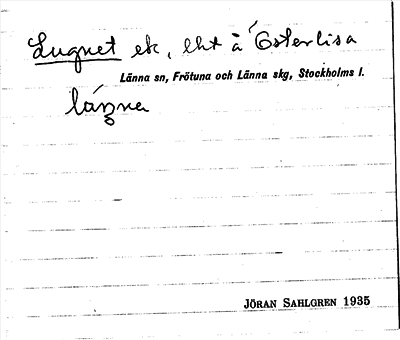 Lugnet ek, lht å Österlisa
Länna sn, Frötuna och Länna skg, Stockholms l.
länna
JÖRAN SAHLGREN 1935